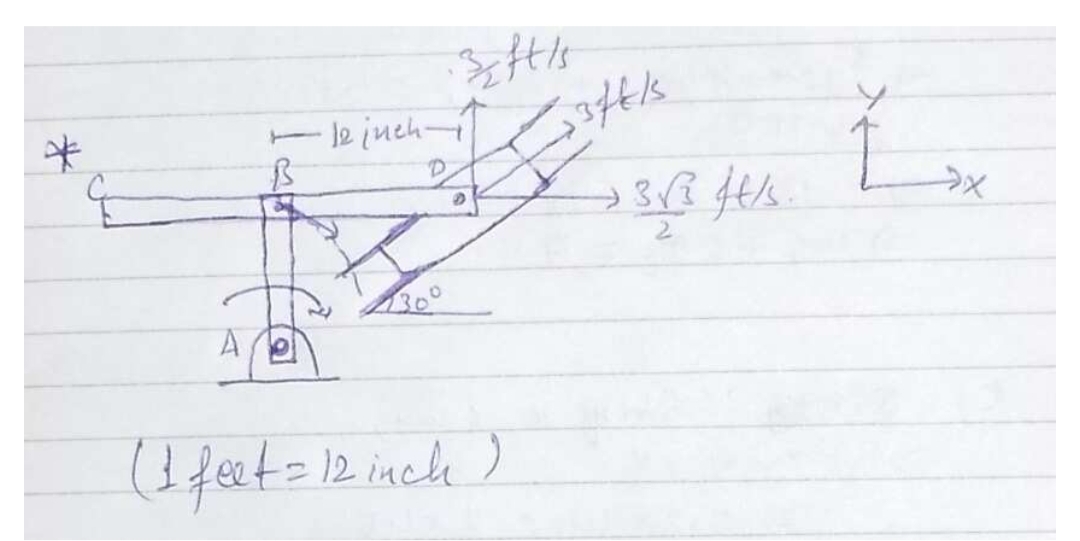 3/2 ft/s
3ft/s
Y
12 inch
*
C
B
D
X
3√3/2 ft/s.
30°
A
(1 feet = 12 inch)